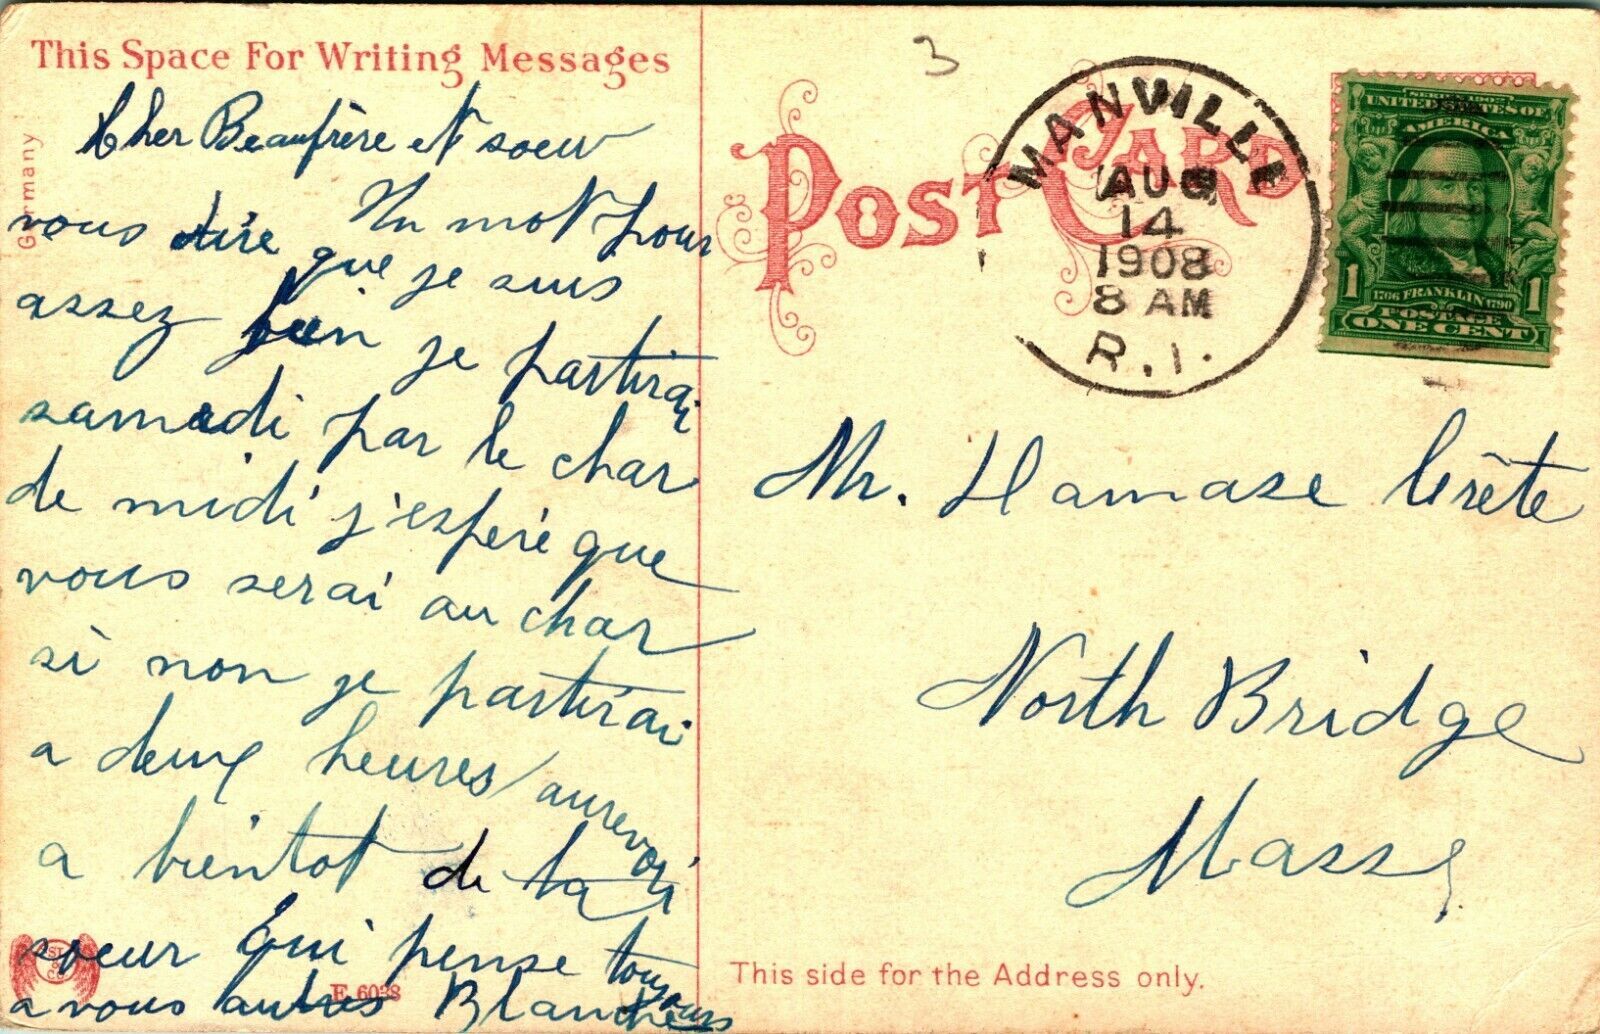 This Space For Writing Messages
Germany
Cher Beaufrère et soeur
Un mot pour
vous dire que je suis
assez bien je partirai
samedi par le char
de midi j'espère que
vous serai au char
si non je partirai
a deux heures aurevoir
a bientot de ta
soeur qui pense toujours
a vous autres Blanche
E 6038
3
POST CARD
MANVILLE
AUG
14
1908
8 AM
R.I.
SERIES 1902
UNITED STATES OF
AMERICA
1 1
1706 FRANKLIN 1790
POSTAGE
ONE CENT
Mr. Damase
North Bridge
Mass
This side for the Address only.